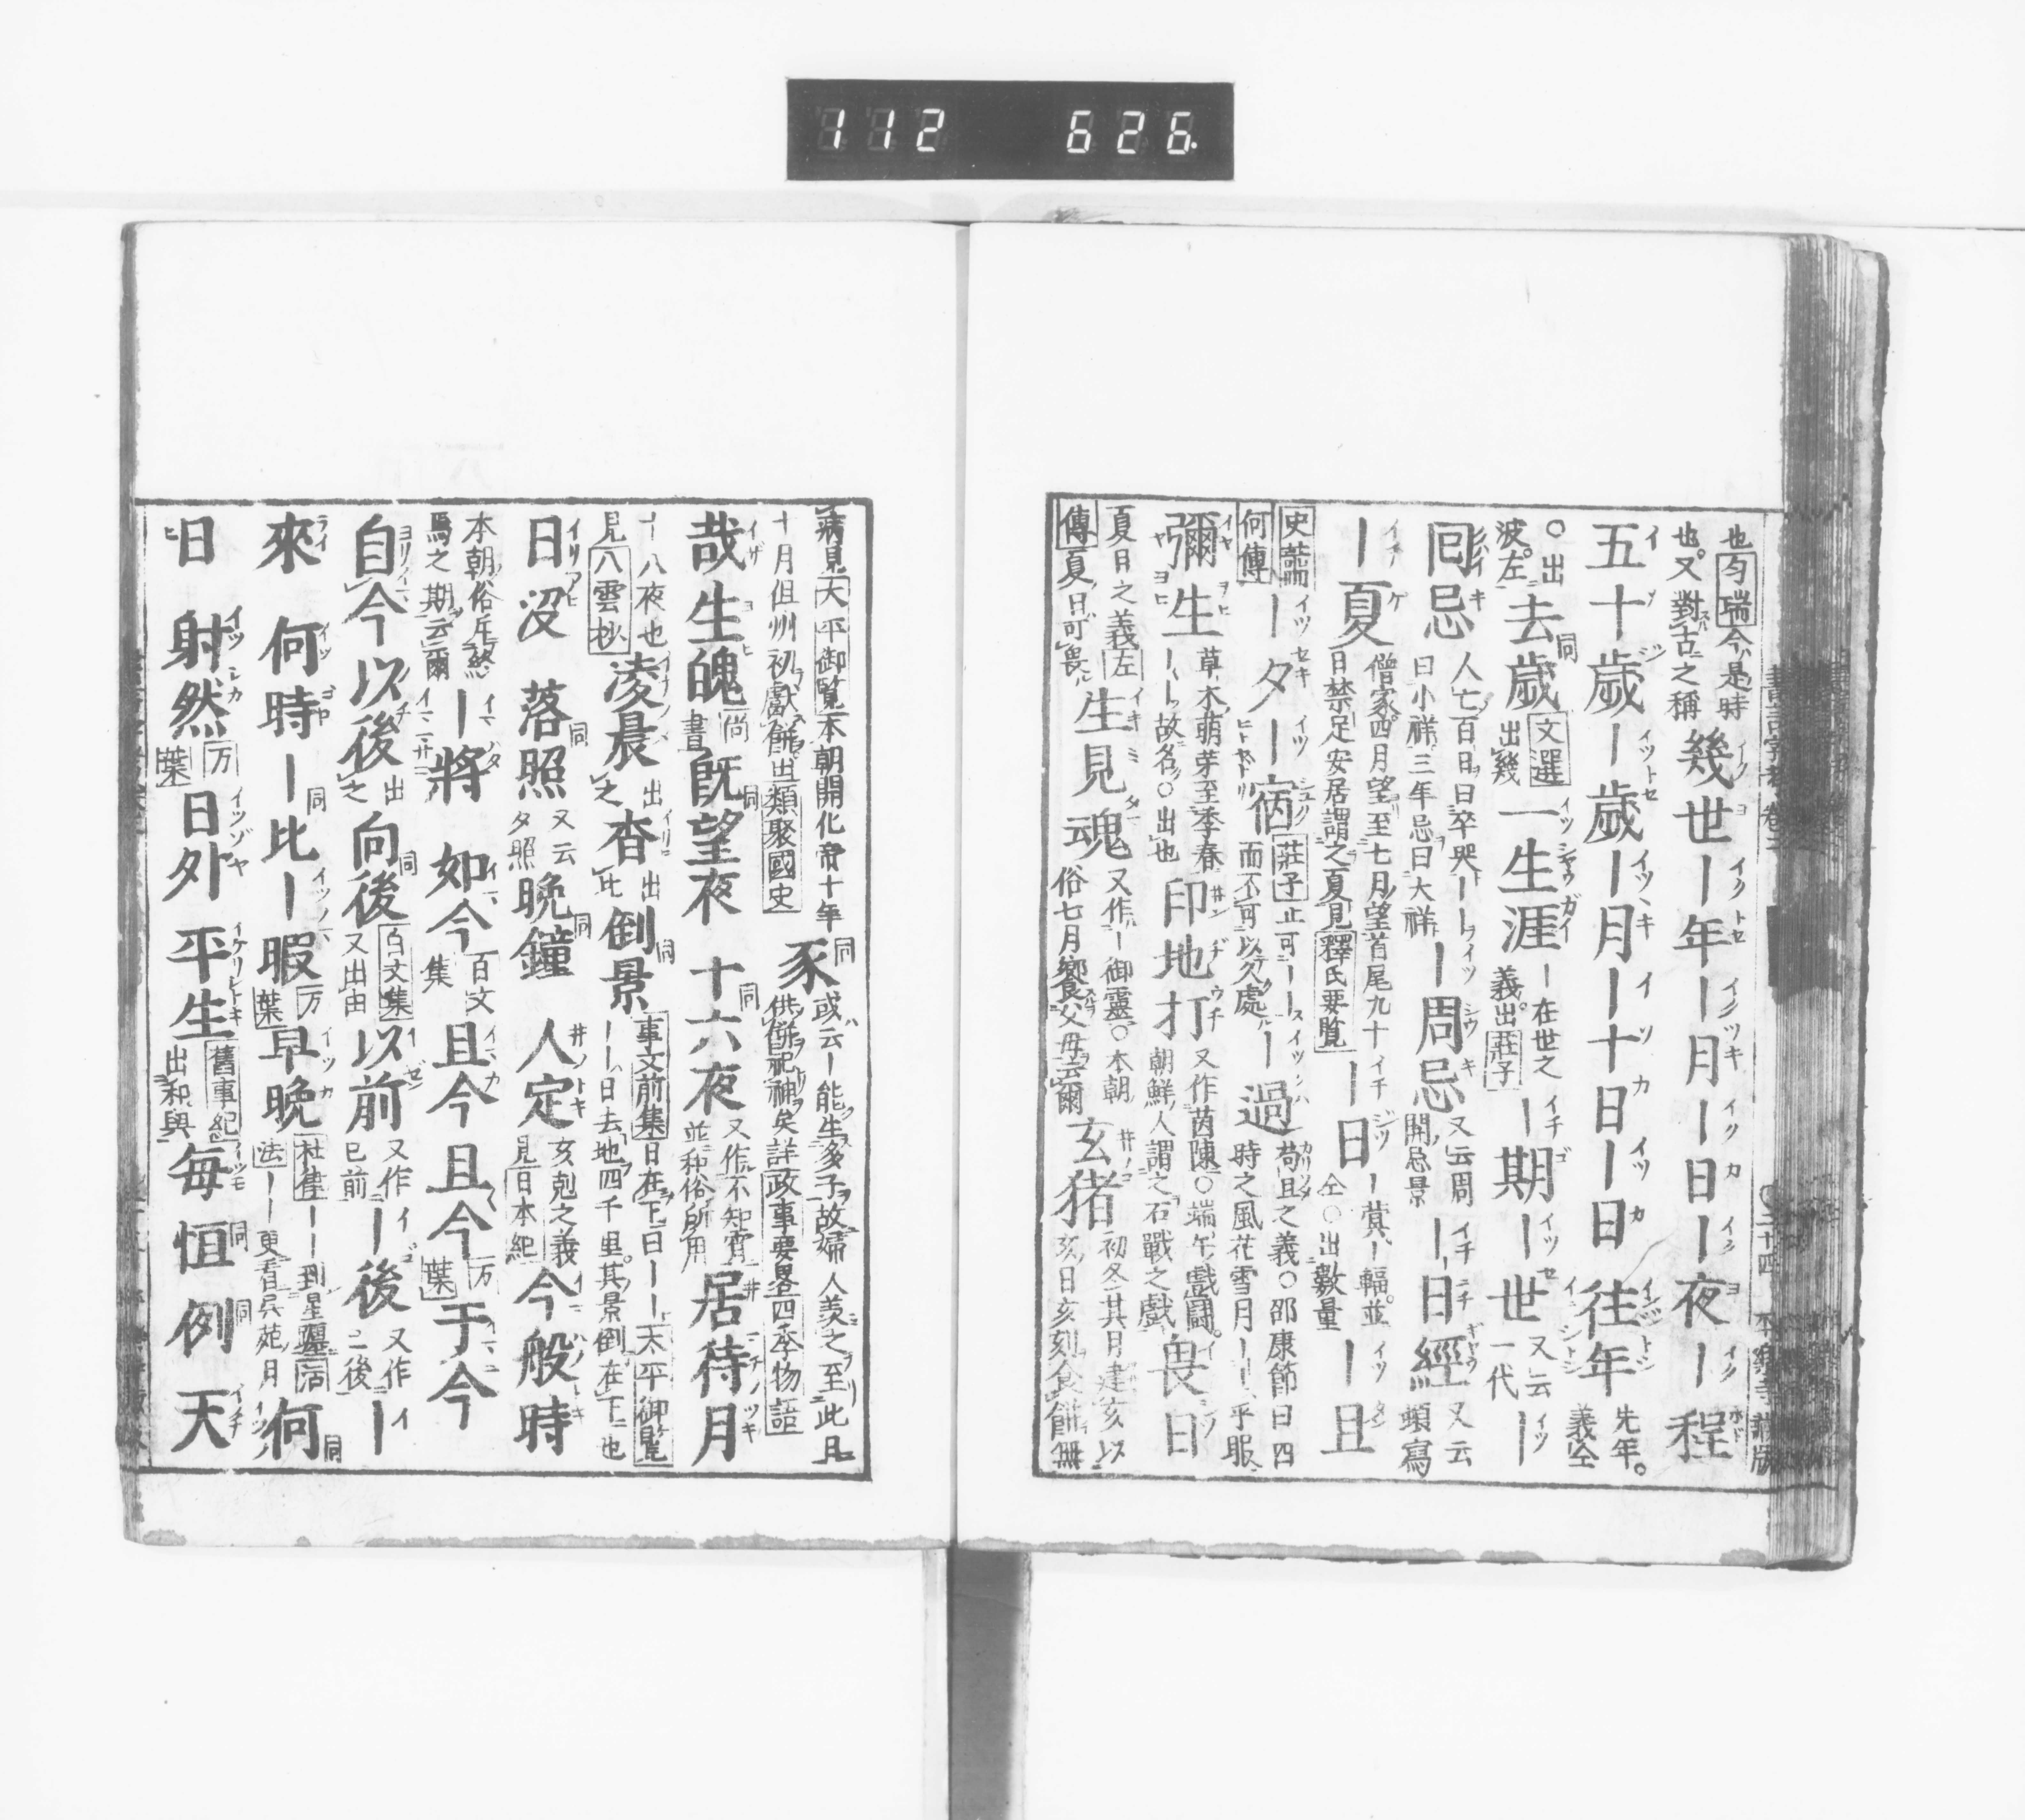 112 626.
也匀瑞今是時
也又對古之稱
幾世｜年｜月｜日｜夜｜程
五十歲｜歲｜月｜十日｜日 往年
先年。
義仝
○出
波。左
去歲
文選
出幾
一生涯
｜在世之
義。出莊子
｜期｜世
又云
一代
｜
回忌
人亡百日曰卒哭｜｜
曰小祥三年忌曰大祥
｜周忌
又云周
開忌景
｜日經
又云
頓寫
｜夏
僧家四月望至七月望首尾九十
日禁足安居謂之夏見釋氏要覽
｜日
｜蓂｜輻並
仝○出數量
｜旦
史記
何傳
｜夕｜宿
莊子止可｜｜
而不可以久處
｜過
苟且之義○邵康節曰四
時之風花雪月｜｜乎服
彌生
草木萌芽至季春
｜｜故名○出也
印地打
又作茵陳○端午戲鬪。
朝鮮人謂之石戰之戲
畏日
夏日之義左
傳夏日可畏
生見魂
又作｜御靈○本朝
俗七月饗父母云爾
玄猪
初冬其月建亥以
亥日亥刻食餅無
病見太平御覽本朝開化帝十年
十月但州初獻餅出類聚國史
豕
或云｜能生多子故婦人羨之至此月
供餅祀神矣詳政事要畧四季物語
哉生魄
尚
書
既望夜 十六夜
又作不知宵
並和俗所用
居待月
十八夜也
見八雲抄
凌晨
出
之
杳
出
比
倒景
事文前集日在下曰｜｜太平御覽
｜｜日去地四千里。其景倒在下也
日沒 落照
又云
夕照
晩鐘 人定
亥剋之義
見日本紀
今般時
本朝俗斥終
焉之期云爾
｜將 如今
百文
集
且今 且今
万
葉
于今
自今以後
出
之
向後
白文集
又出由
以前
又作
已前
｜後
又作
已後
｜
來 何時｜比｜暇
万
葉
早晩
杜律｜｜到星躔活
法｜｜更看呉苑月
何
日 射然
万
葉
日外 平生
舊事紀
出和與
每 恒 例 天